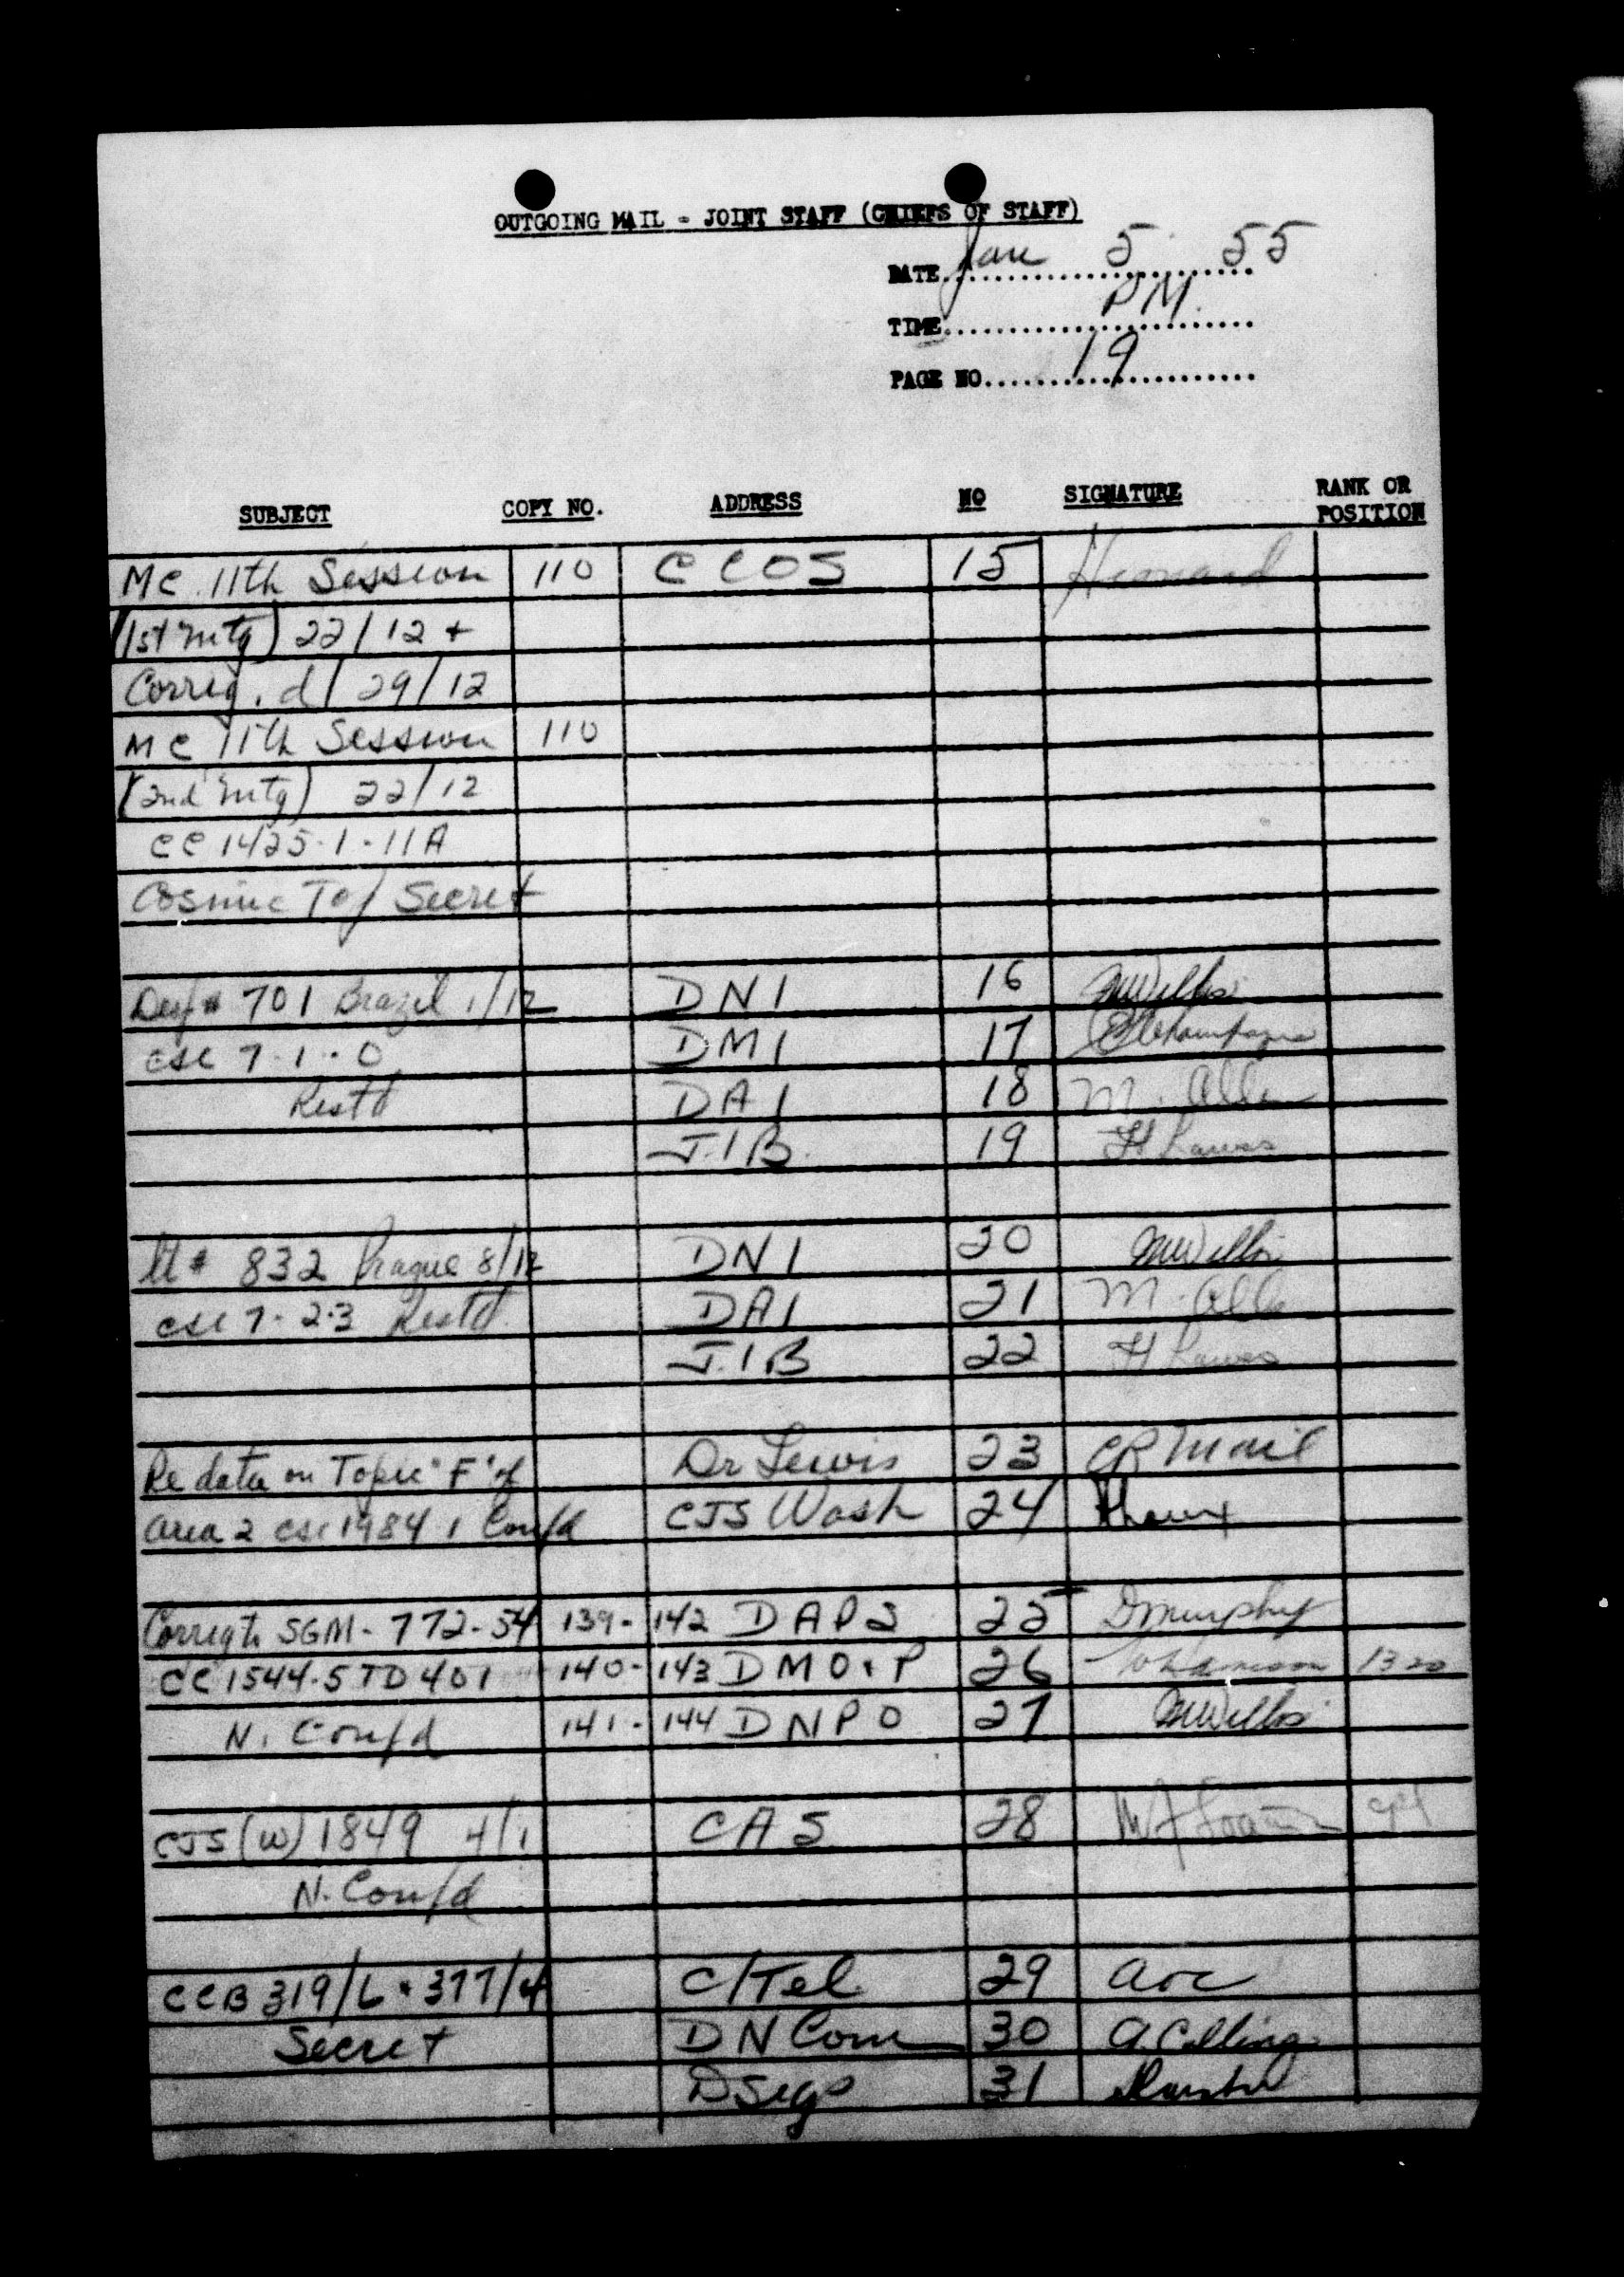 OUTGOING MAIL - JOINT STAFF (CHIEFS OF STAFF)
DATE Jan 5 55
TIME PM.
PAGE NO. 19
SUBJECT COPY NO. ADDRESS NO SIGNATURE RANK OR POSITION
MC 11th Session 110 CCOS 15
(1st mtg) 22/12 +
Corrig. d/ 29/12
MC 11th Session 110
(2nd mtg) 22/12
CC 1425-1-11A
Cosmic Top Secret
Desp # 701 Brazil 1/12 DNI 16 MWillis
CSC 7-1-0 DMI 17 Champagne
Restd DAI 18 M. Allen
J.I.B. 19 H Lawes
Lt # 832 Prague 8/12 DNI 20 MWillis
CSC 7-2-3 Restd. DAI 21 M. Allen
J.I.B 22 H Lawes
Re data on Topic "F" of Dr Lewis 23 CR Mail
Area 2 CSC 1984-1 Confd CJS Wash 24
Corrig to SGM-772-54 139-142 DAPS 25 DMurphy
CC 1544-5 TD 401 140-143 DMO&P 26 1320
N. Confd 141-144 DNPO 27 MWillis
CJS (W) 1849 4/1 CAS 28
N. Confd
CCB 319/6 + 377/4 C/Tel 29
Secret DNCom 30 A. Collings
DSigs 31